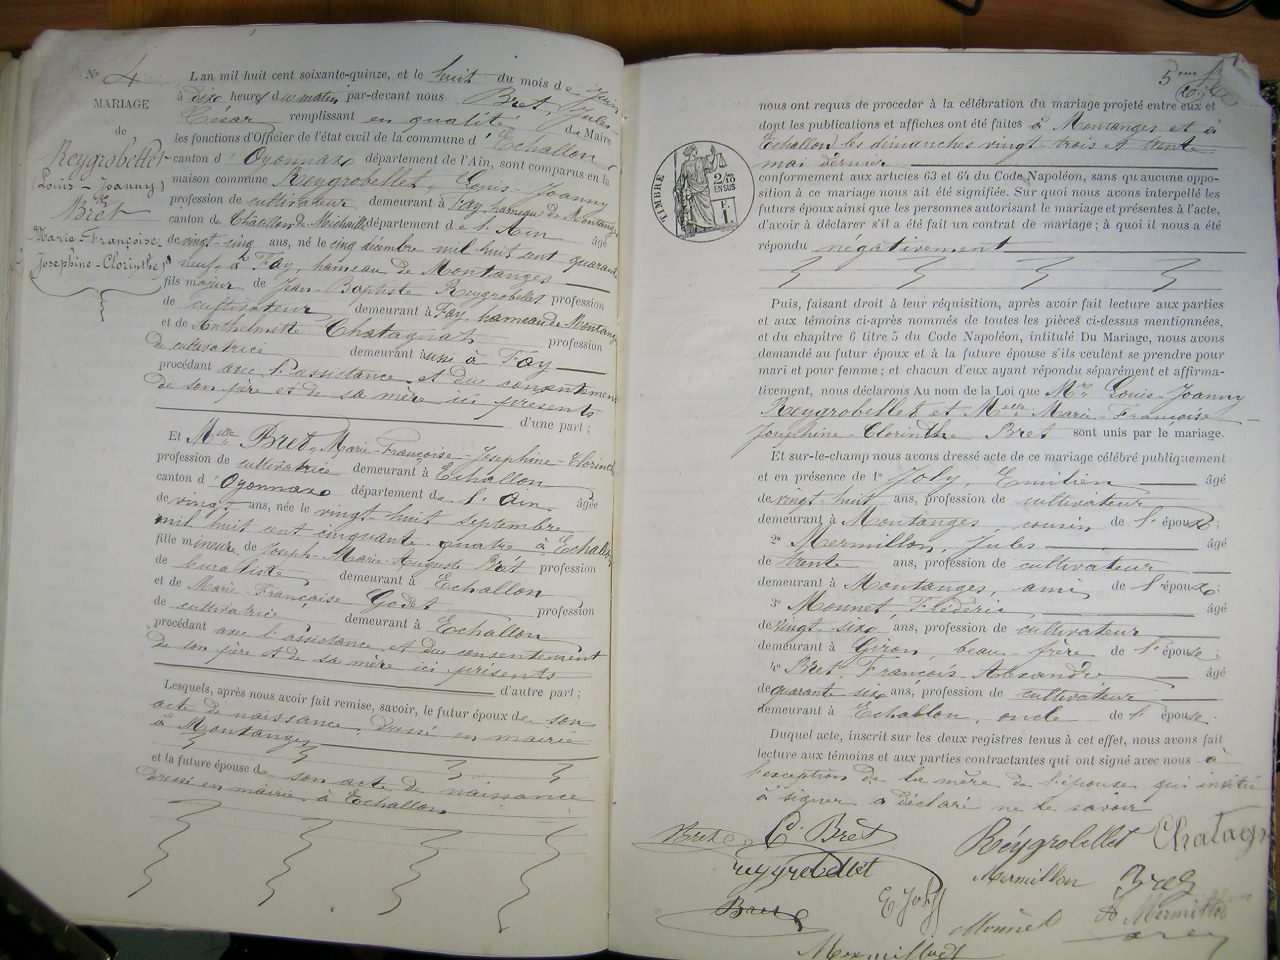 N° 4
MARIAGE
de
Reygrobellet
Louis-Joanny
&
Bret
Marie-Françoise
Josephine-Clorinthe
L'an mil huit cent soixante-quinze, et le huit du mois de Juin
à dix heures du matin par-devant nous Bret, Jules-
César remplissant en qualité de Maire
les fonctions d'Officier de l'état civil de la commune d'Echallon
canton d'Oyonnax département de l'Ain, sont comparus en la
maison commune Reygrobellet, Louis-Joanny
profession de cultivateur demeurant à Fay, hameau de Montanges
canton de Chatillon de Michaille département de l'Ain âgé
de vingt-cinq ans, né le cinq décembre mil huit cent quarante
neuf, à Fay, hameau de Montanges
fils majeur de Jean-Baptiste Reygrobellet profession
de cultivateur demeurant à Fay hameau de Montanges
et de Anthelmette Chatagnat profession
de cultivatrice demeurant aussi à Fay
procédant avec l'assistance et du consentement
de son père et de sa mère ici présents
d'une part;
Et Melle Bret, Marie-Françoise-Josephine-Clorinthe
profession de cultivatrice demeurant à Echallon
canton d'Oyonnax département de l'Ain âgée
de vingt ans, née le vingt-huit septembre
mil huit cent cinquante-quatre à Echallon
fille mineure de Joseph-Marie-Auguste Bret profession
de buraliste demeurant à Echallon
et de Marie Françoise Godet profession
de cultivatrice demeurant à Echallon
procédant avec l'assistance et du consentement
de son père et de sa mère ici présents
d'autre part;
Lesquels, après nous avoir fait remise, savoir, le futur époux de son
acte de naissance, dressé en mairie
à Montanges
et la future épouse de son acte de naissance
dressé en mairie à Echallon
5me
TIMBRE
2/10
EN SUS
F.
1.
nous ont requis de procéder à la célébration du mariage projeté entre eux et
dont les publications et affiches ont été faites à Montanges et à
Echallon les dimanches vingt trois et trente
mai dernier
conformément aux articles 63 et 64 du Code Napoléon, sans qu'aucune oppo-
sition à ce mariage nous ait été signifiée. Sur quoi nous avons interpellé les
futurs époux ainsi que les personnes autorisant le mariage et présentes à l'acte,
d'avoir à déclarer s'il a été fait un contrat de mariage; à quoi il nous a été
répondu négativement
Puis, faisant droit à leur réquisition, après avoir fait lecture aux parties
et aux témoins ci-après nommés de toutes les pièces ci-dessus mentionnées,
et du chapitre 6 titre 5 du Code Napoléon, intitulé Du Mariage, nous avons
demandé au futur époux et à la future épouse s'ils veulent se prendre pour
mari et pour femme; et chacun d'eux ayant répondu séparément et affirma-
tivement, nous déclarons Au nom de la Loi que Mr Louis-Joanny
Reygrobellet et Melle Marie-Françoise-
Josephine-Clorinthe Bret sont unis par le mariage.
Et sur-le-champ nous avons dressé acte de ce mariage célébré publiquement
et en présence de 1° Joly, Emilien âgé
de vingt-huit ans, profession de cultivateur
demeurant à Montanges, cousin de l'époux;
2° Mermillon, Jules âgé
de trente ans, profession de cultivateur
demeurant à Montanges, ami de l'époux;
3° Monnet Fléderic âgé
de vingt-six ans, profession de cultivateur
demeurant à Giron, beau-frère de l'épouse;
4° Bret, François-Alexandre âgé
de quarante six ans, profession de cultivateur
demeurant à Echallon, oncle de l'épouse.
Duquel acte, inscrit sur les deux registres tenus à cet effet, nous avons fait
lecture aux témoins et aux parties contractantes qui ont signé avec nous à
l'exception de la mère de l'épouse qui invitée
à signer a déclaré ne le savoir
Bret C. Bret Réygrobellet Chatagn
reygrobellet Mermillon Bret
Bret E. Joly Monnet Mermillod
Mermillod